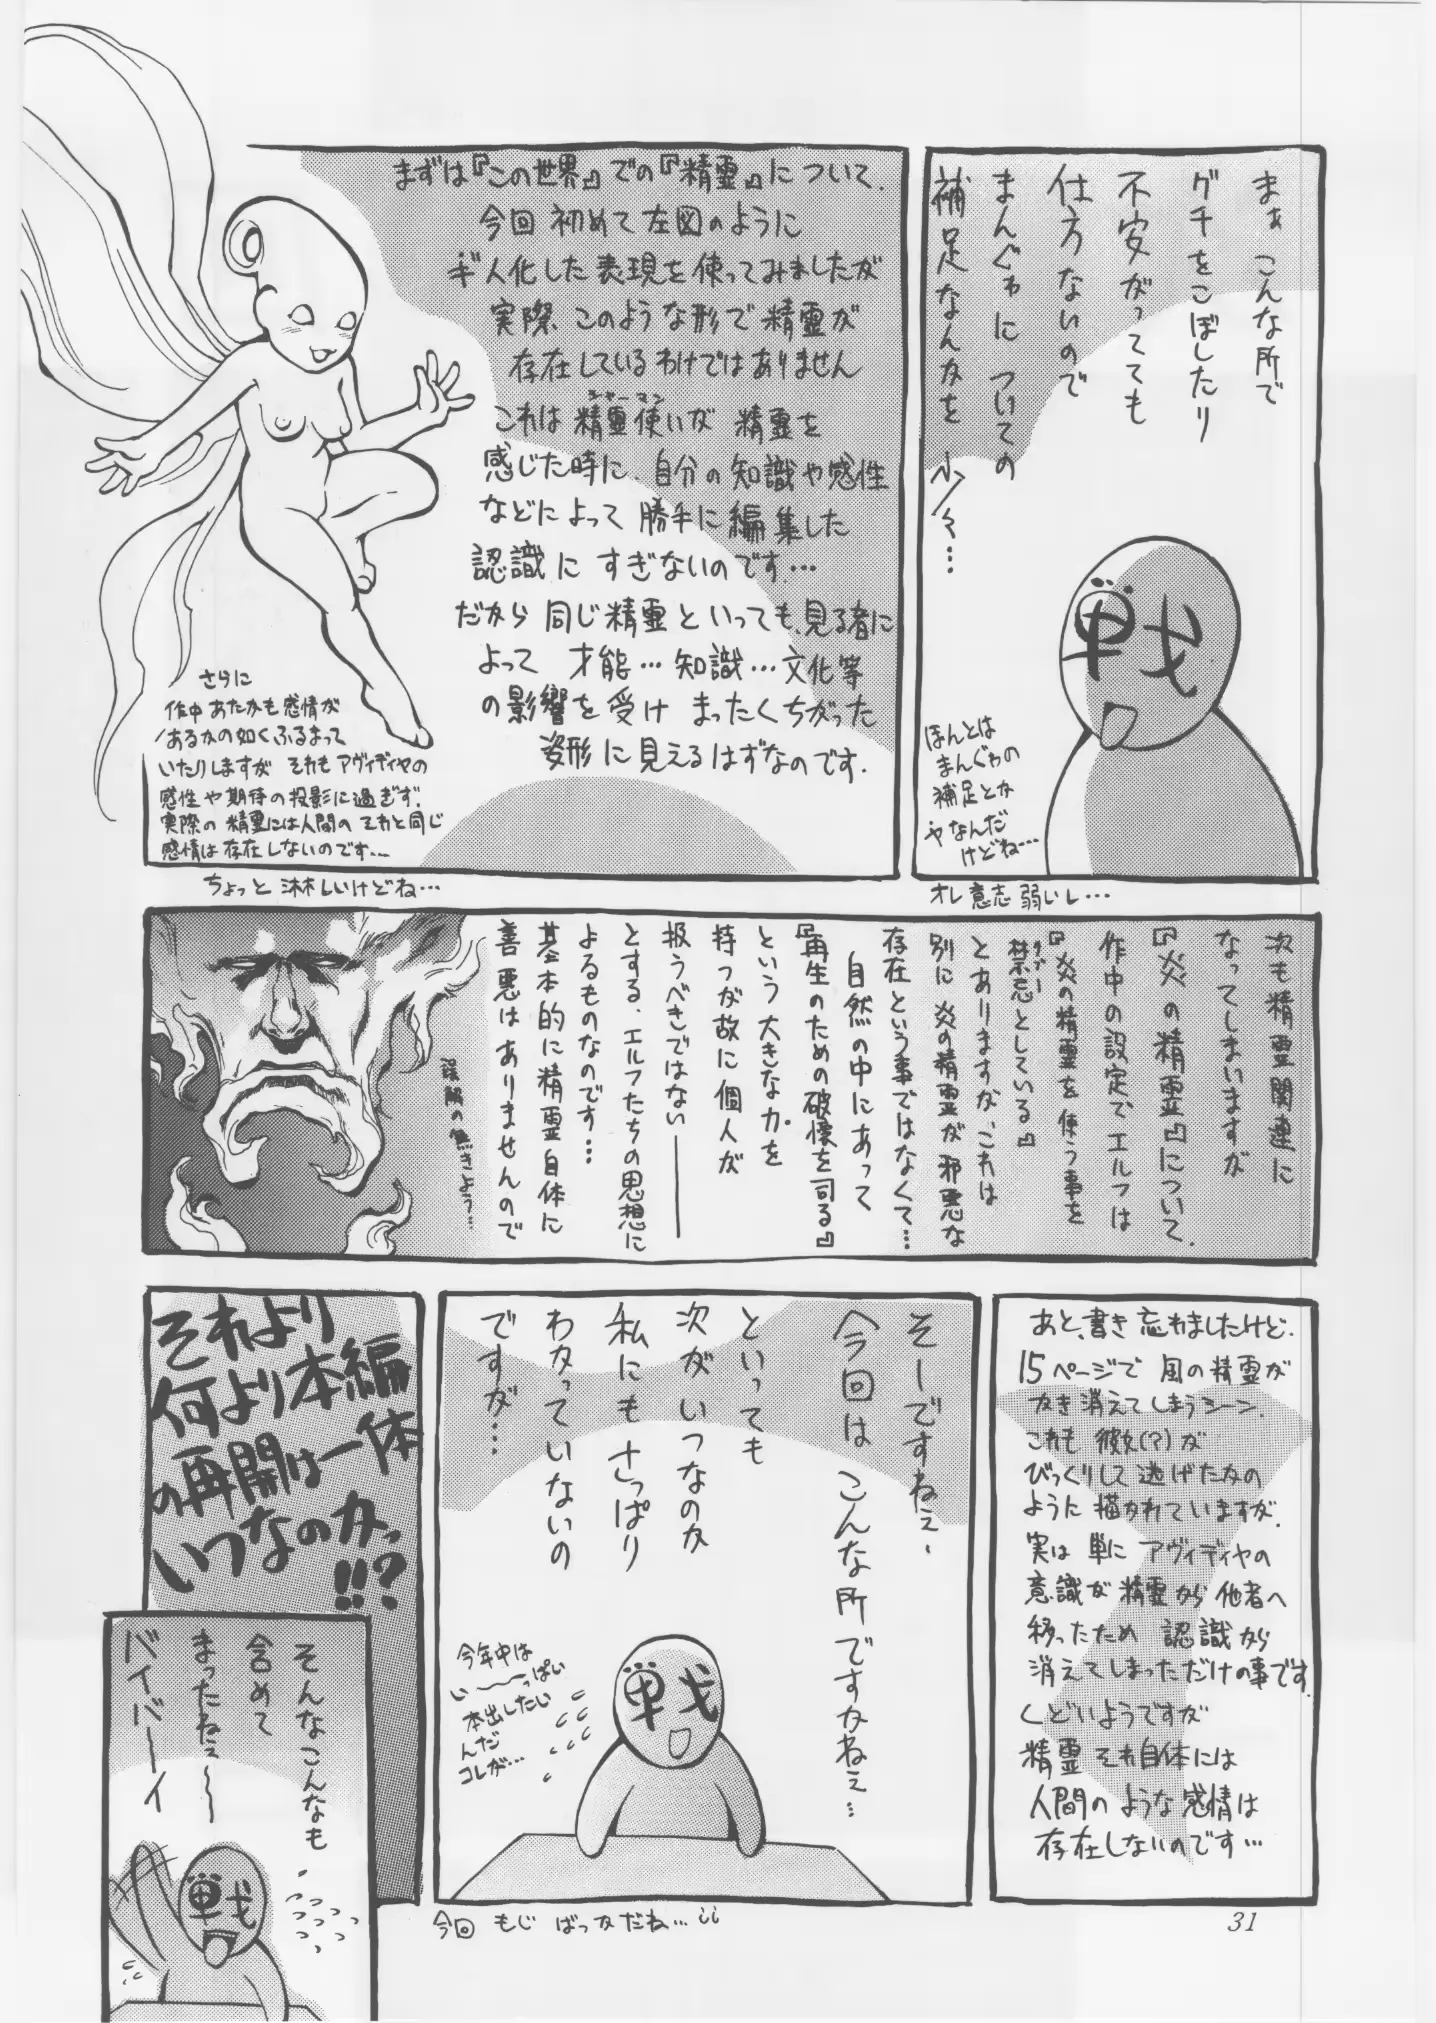 まぁ こんな所で
グチをこぼしたり
不安がってても
仕方ないので
まんぐゎに ついての
補足なんかを 少々…
ほんとは
まんぐゎの
補足とか
ヤなんだ
けどね…
オレ意志弱いし…
まずは『この世界』での『精霊』について.
今回 初めて左図のように
ギ人化した表現を使ってみましたが
実際 このような形で精霊が
存在しているわけではありません
シャーマン
これは 精霊使いが 精霊を
感じた時に、自分の知識や感性
などによって 勝手に編集した
認識に すぎないのです…
だから 同じ精霊といっても、見る者に
よって 才能…知識…文化等
の影響を受け まったくちがった
姿形に見えるはずなのです.
さらに
作中 あたかも感情が
あるかの如くふるまって
いたりしますが それもアヴィディヤの
感性や期待の投影に過ぎず、
実際の 精霊には人間の それと同じ
感情は存在しないのです…
ちょっと 淋しいけどね…
次も精霊関連に
なってしまいますが
『炎の精霊』について.
作中の設定で、エルフは
『炎の精霊を使う事を
タブー
禁忌としている』
とありますが、これは
別に 炎の精霊が 邪悪な
存在という事ではなくて…
自然の中にあって
『再生のための破壊を司る』
という大きな力を
持つが故に個人が
扱うべきではない――
とする、エルフたちの思想に
よるものなのです…
基本的に精霊自体に
善悪はありませんので
誤解の無きよう…
あと、書き忘れましたけど、
15ページで 風の精霊が
かき消えてしまうシーン、
これも 彼女(?)が
びっくりして逃げたかの
ように描かれていますが、
実は 単に アヴィディヤの
意識が 精霊から 他者へ
移ったため 認識から
消えてしまっただけの事です.
くどいようですが
精霊それ自体には
人間のような感情は
存在しないのです…
そーですねぇ、
今回は こんな所ですかねぇ…
といっても
次がいつなのか
私にもさっぱり
わかっていないの
ですが…
今年中は
い〜〜っぱい
本出したい
んだ
コレが…
今回 もじ ばっかだね…
それより
何より本編
の再開は一体
いつなのかっ
!!?
そんなこんなも
含めて
まったねぇ〜〜
バイバーイ
戦
戦
戦
31